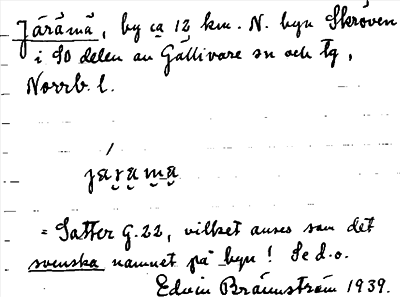 Järämä, by ca 12 km. N. byn Skröven
i SO delen av Gällivare sn och tg,
Norrb. l.
järämä
= Satter G.22, vilket anses som det
svenska namnet på byn! Se d.o.
Edvin Brännström 1939.